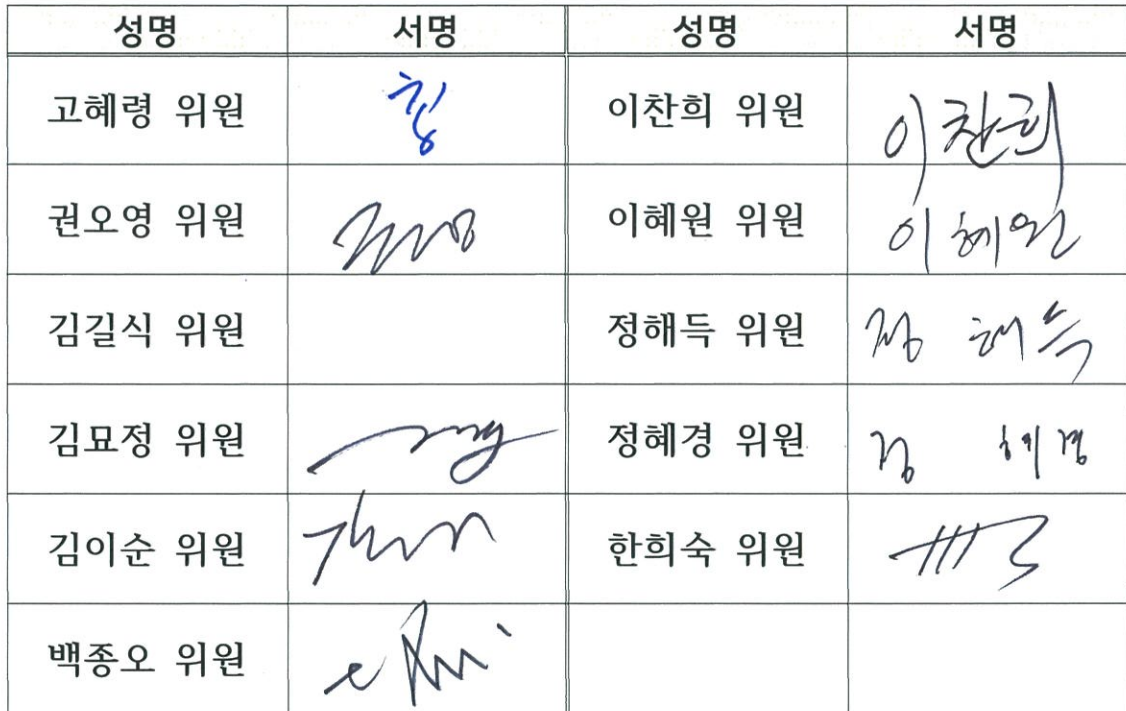 성명 서명 성명 서명
고혜령 위원 이찬희 위원 이찬희
권오영 위원 이혜원 위원 이혜원
김길식 위원 정해득 위원 정해득
김묘정 위원 정혜경 위원 정혜경
김이순 위원 한희숙 위원
백종오 위원